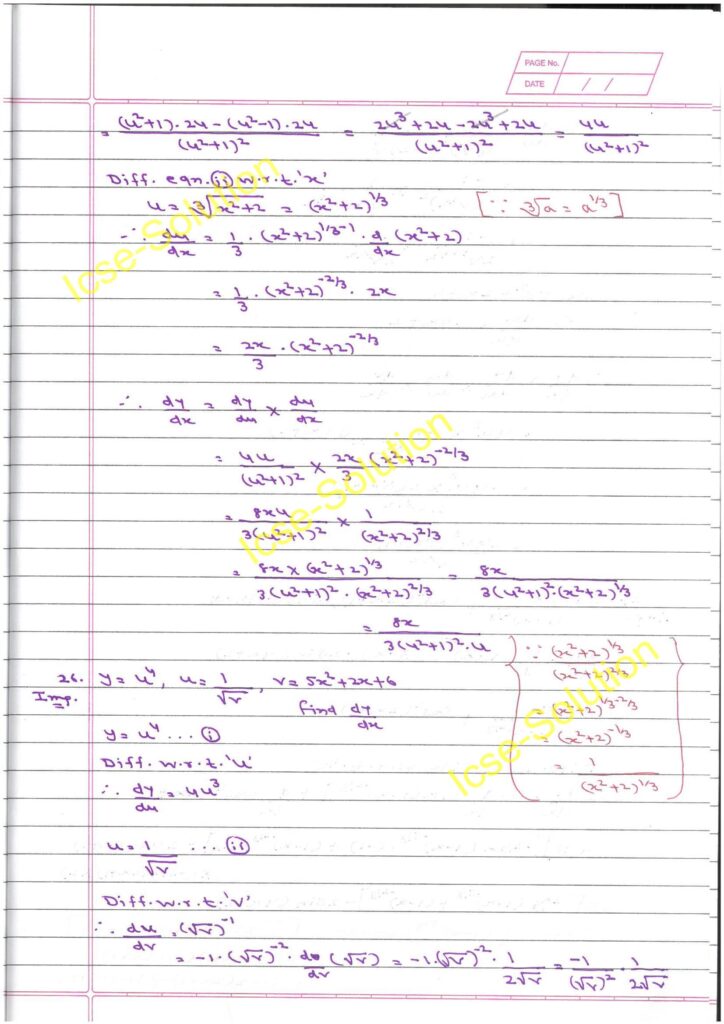 PAGE No.
DATE / /
= (u²+1).2u - (u²-1).2u / (u²+1)² = 2u³+2u-2u³+2u / (u²+1)² = 4u / (u²+1)²
Diff. eqn. (ii) w.r.t. 'x'
u = ∛(x²+2) = (x²+2)^1/3 [∵ ∛a = a^1/3]
∴ du/dx = 1/3 . (x²+2)^1/3-1 . d/dx (x²+2)
= 1/3 . (x²+2)^-2/3 . 2x
= 2x/3 . (x²+2)^-2/3
∴ dy/dx = dy/du × du/dx
= 4u / (u²+1)² × 2x/3 (x²+2)^-2/3
= 8xu / 3(u²+1)² × 1 / (x²+2)^2/3
= 8x × (x²+2)^1/3 / 3(u²+1)² . (x²+2)^2/3 = 8x / 3(u²+1)².(x²+2)^1/3
= 8x / 3(u²+1)².u
∵ (x²+2)^1/3 / (x²+2)^2/3
= (x²+2)^1/3-2/3
= (x²+2)^-1/3
= 1 / (x²+2)^1/3
26. y = u⁴, u = 1/√v, v = 5x²+2x+6
Imp. find dy/dx
y = u⁴ ... (i)
Diff. w.r.t. 'u'
∴ dy/du = 4u³
u = 1/√v ... (ii)
Diff. w.r.t. 'v'
∴ du/dv = (√v)^-1
= -1.(√v)^-2 . d/dv (√v) = -1.(√v)^-2 . 1/2√v = -1/(√v)² . 1/2√v
Icse-Solution
Icse-Solution
Icse-Solution